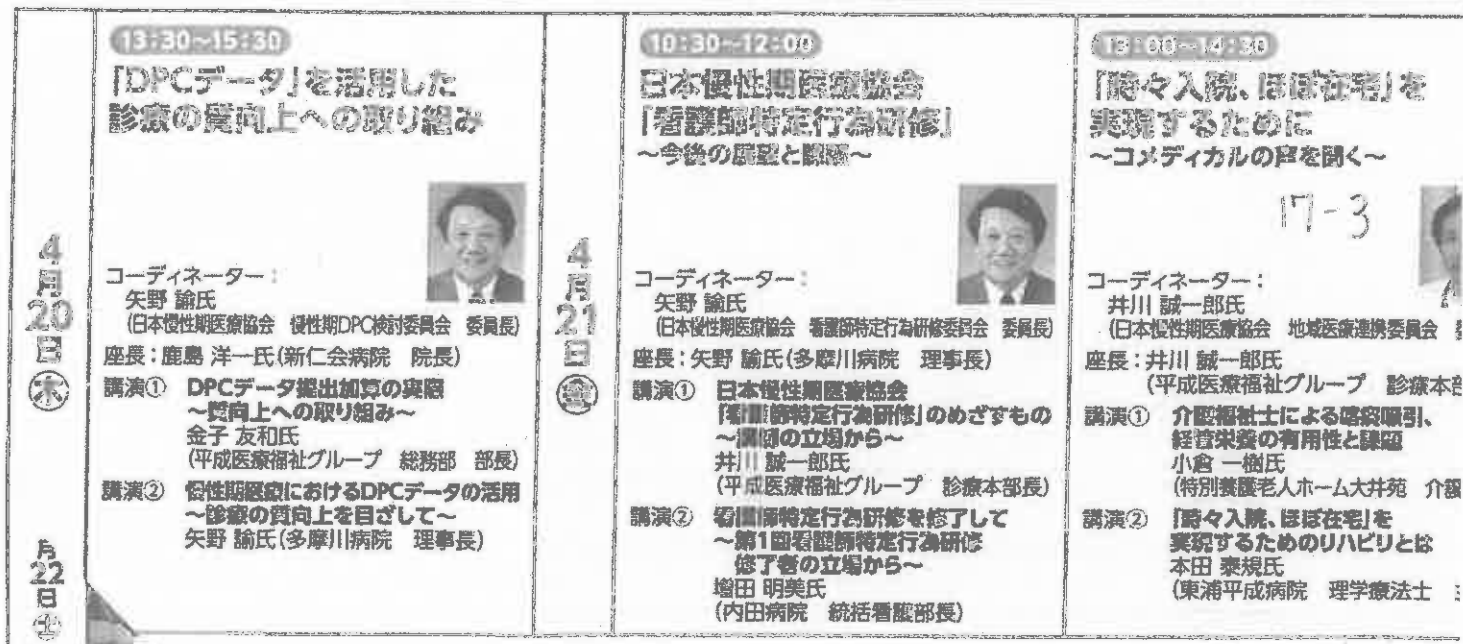 4月20日㊍
13:30~15:30
「DPCデータ」を活用した
診療の質向上への取り組み
コーディネーター:
矢野 諭氏
(日本慢性期医療協会 慢性期DPC検討委員会 委員長)
座長:鹿島 洋一氏(新仁会病院 院長)
講演① DPCデータ提出加算の実際
~質向上への取り組み~
金子 友和氏
(平成医療福祉グループ 総務部 部長)
講演② 慢性期医療におけるDPCデータの活用
~診療の質向上を目ざして~
矢野 諭氏(多摩川病院 理事長)
月22日㊏
4月21日㊎
10:30~12:00
日本慢性期医療協会
「看護師特定行為研修」
~今後の展望と課題~
コーディネーター:
矢野 諭氏
(日本慢性期医療協会 看護師特定行為研修委員会 委員長)
座長:矢野 諭氏(多摩川病院 理事長)
講演① 日本慢性期医療協会
「看護師特定行為研修」のめざすもの
~講師の立場から~
井川 誠一郎氏
(平成医療福祉グループ 診療本部長)
講演② 看護師特定行為研修を修了して
~第1回看護師特定行為研修
修了者の立場から~
増田 明美氏
(内田病院 統括看護部長)
13:00~14:30
「時々入院、ほぼ在宅」を
実現するために
~コメディカルの声を聞く~
17-3
コーディネーター:
井川 誠一郎氏
(日本慢性期医療協会 地域医療連携委員会
座長:井川 誠一郎氏
(平成医療福祉グループ 診療本部
講演① 介護福祉士による喀痰吸引、
経管栄養の有用性と課題
小倉 一樹氏
(特別養護老人ホーム大井苑 介護
講演② 「時々入院、ほぼ在宅」を
実現するためのリハビリとは
本田 泰規氏
(東浦平成病院 理学療法士